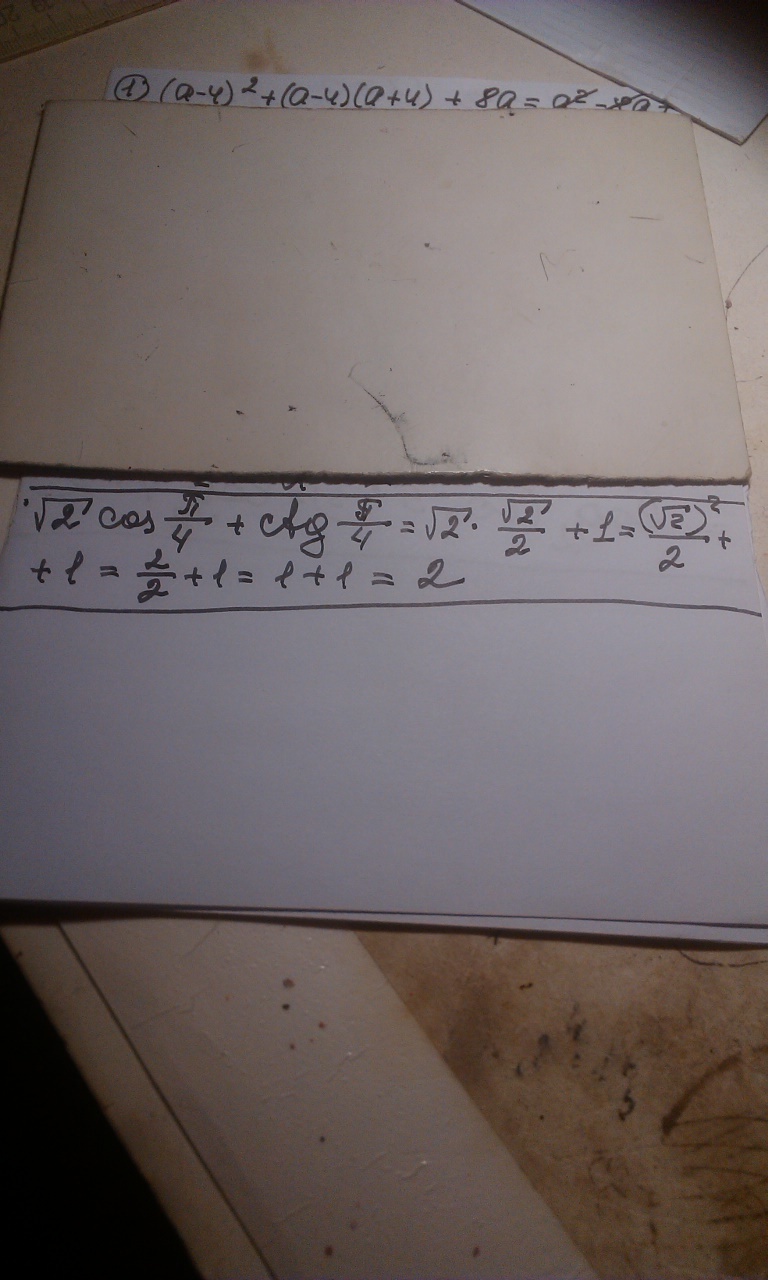 ① (a-4)² + (a-4)(a+4) + 8a = a² - 8a +
√2 cos π/4 + ctg π/4 = √2 · √2/2 + 1 = (√2)²/2 +
+ 1 = 2/2 + 1 = 1 + 1 = 2